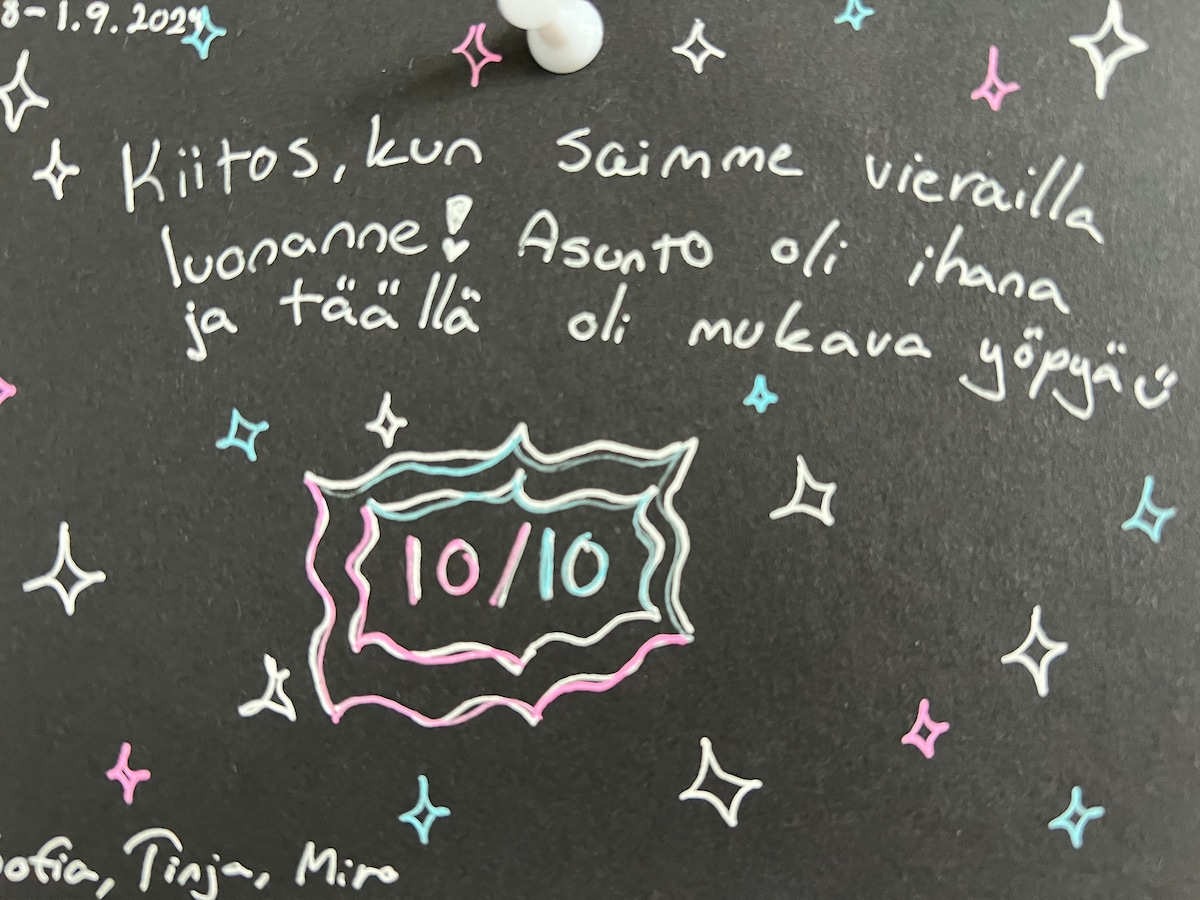 8-1.9.2024
Kiitos, kun saimme vierailla
luonanne! Asunto oli ihana
ja täällä oli mukava yöpyä
10/10
ofia, Tinja, Miro